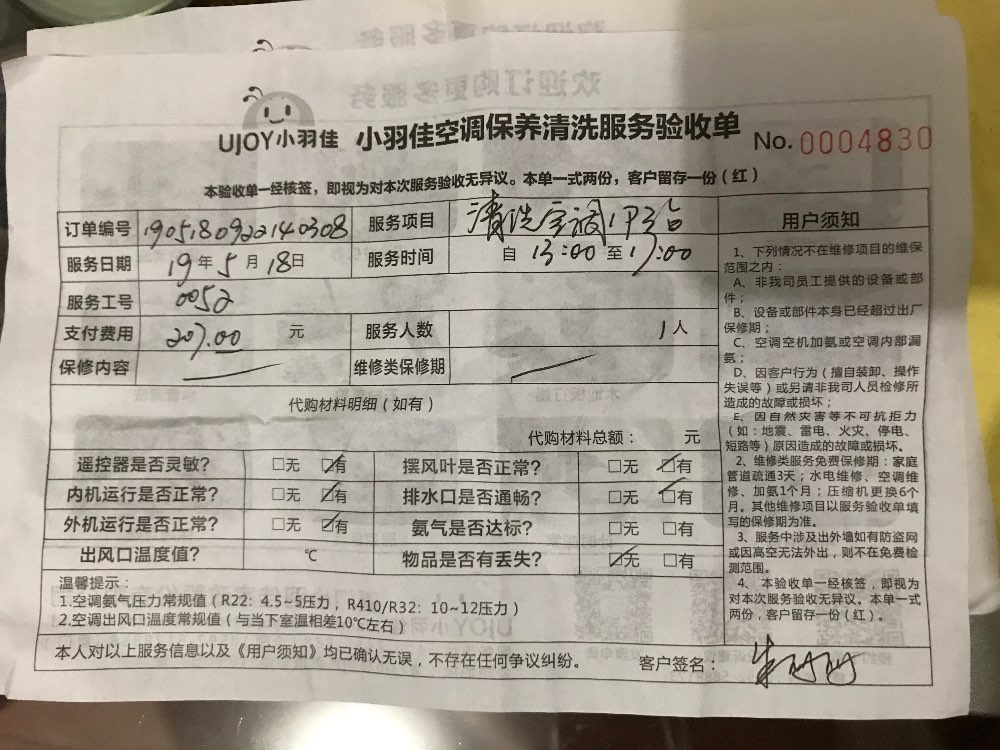 UJOY小羽佳 小羽佳空调保养清洗服务验收单 No. 0004830
本验收单一经核签，即视为对本次服务验收无异议。本单一式两份，客户留存一份（红）
订单编号 1905180922140308 服务项目 清洗空调1甲台
服务日期 19年5月18日 服务时间 自 13:00 至 17:00
服务工号 0052
支付费用 207.00 元 服务人数 1人
保修内容 维修类保修期
代购材料明细（如有）
代购材料总额： 元
遥控器是否灵敏? □无 ☑有 摆风叶是否正常? □无 ☑有
内机运行是否正常? □无 ☑有 排水口是否通畅? □无 ☑有
外机运行是否正常? □无 ☑有 氨气是否达标? □无 □有
出风口温度值? ℃ 物品是否有丢失? ☑无 □有
温馨提示：
1.空调氨气压力常规值（R22：4.5~5压力，R410/R32：10~12压力）
2.空调出风口温度常规值（与当下室温相差10℃左右）
本人对以上服务信息以及《用户须知》均已确认无误，不存在任何争议纠纷。 客户签名：
用户须知
1、下列情况不在维修项目的维保
范围之内：
A、非我司员工提供的设备或部
件；
B、设备或部件本身已经超过出厂
保修期；
C、空调空机加氨或空调内部漏
氨；
D、因客户行为（擅自装卸、操作
失误等）或另请非我司人员检修所
造成的故障或损坏；
E、因自然灾害等不可抗拒力
（如：地震、雷电、火灾、停电、
短路等）原因造成的故障或损坏。
2、维修类服务免费保修期：家庭
管道疏通3天；水电维修、空调维
修、加氨1个月；压缩机更换6个
月。其他维修项目以服务验收单填
写的保修期为准。
3、服务中涉及出外墙如有防盗网
或因高空无法外出，则不在免费检
测范围。
4、本验收单一经核签，即视为
对本次服务验收无异议。本单一式
两份，客户留存一份（红）。